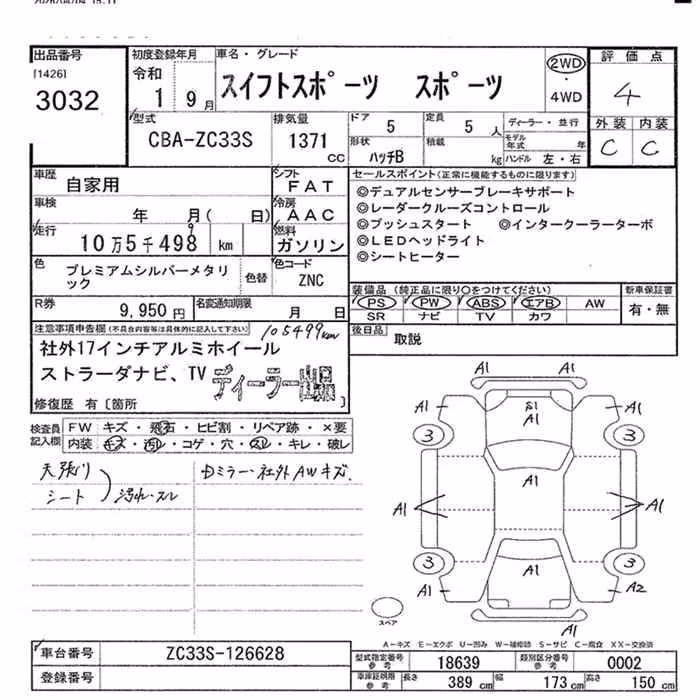 出品番号
[1426]
3032
初度登録年月
令和
1 9月
車名・グレード
スイフトスポーツ スポーツ
2WD
・
4WD
評価点
4
外装 内装
C C
型式
CBA-ZC33S
排気量
1371
cc
ドア 5
定員 5 人
形状 ハッチB
積載 kg
ディーラー・並行
モデル年式 年
ハンドル 左・右
車歴
自家用
シフト
FAT
車検
年 月( 日)
冷房
AAC
走行
10万5千498 km
9
燃料
ガソリン
色
プレミアムシルバーメタリック
色替
色コード
ZNC
R券
9,950 円
名変通知期限
月 日
セールスポイント(正常に機能するものに限ります)
◎デュアルセンサーブレーキサポート
◎レーダークルーズコントロール
◎プッシュスタート ◎インタークーラーターボ
◎LEDヘッドライト
◎シートヒーター
装備品(純正品に限り○をつけてください)
PS PW ABS エアB AW
SR ナビ TV カワ
新車保証書
有・無
後日品
取説
注意事項申告欄(不具合内容等は具体的に記入して下さい)
105499km
社外17インチアルミホイール
ストラーダナビ、TV
ディーラー出品
修復歴 有〔箇所 〕
検査員記入欄
FW キズ・飛石・ヒビ割・リペア跡・×要
内装 キズ・汚レ・コゲ・穴・スレ・キレ・破レ
天張り
シート
汚れ・スレ
Dミラー・社外AWキズ.
A1
A1
A1 S1 A1
A1
3 3
A1
A1 A1
3 3
A1
A1 A2
A1
スペア
A-キズ E-エクボ U-凹み W-補修跡 S-サビ C-腐食 XX-交換済
車台番号
ZC33S-126628
登録番号
型式指定番号
参考
18639
類別区分番号
参考
0002
車庫証明用
参考
長さ 389 cm 幅 173 cm 高さ 150 cm